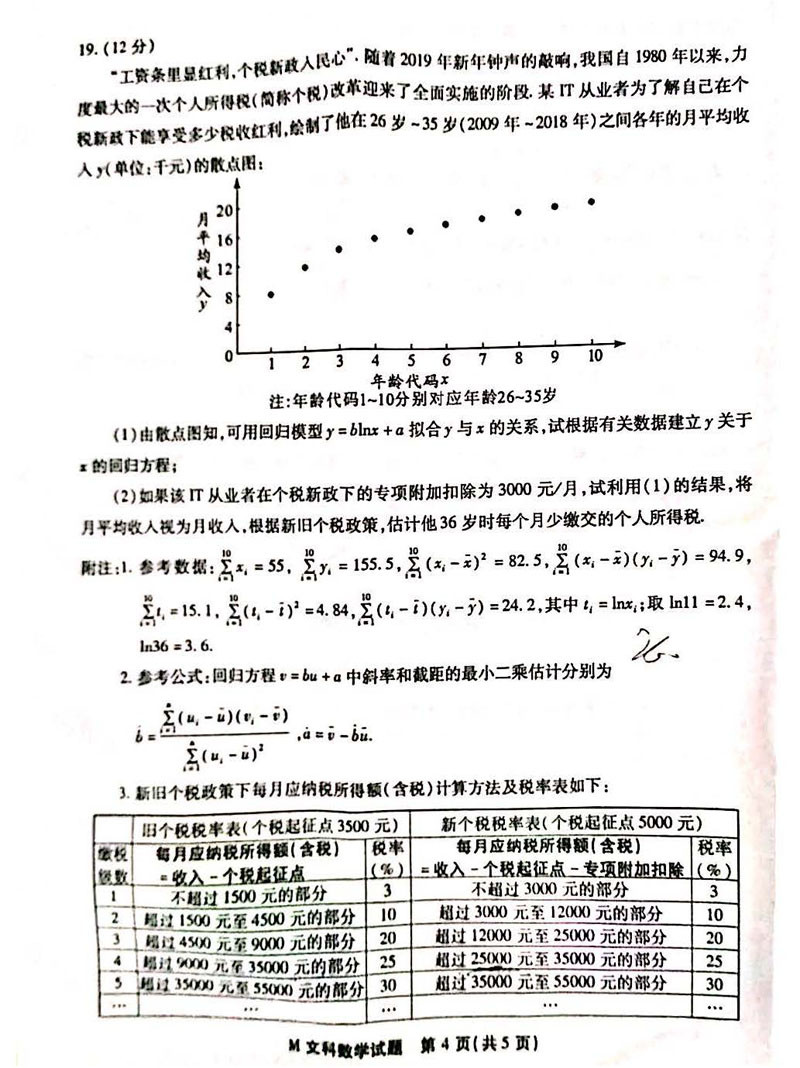 19. (12 分)
“工资条里显红利,个税新政入民心”. 随着 2019 年新年钟声的敲响,我国自 1980 年以来,力
度最大的一次个人所得税(简称个税)改革迎来了全面实施的阶段. 某 IT 从业者为了解自己在个
税新政下能享受多少税收红利,绘制了他在 26 岁 ~35 岁(2009 年 ~2018 年)之间各年的月平均收
入 y(单位:千元)的散点图:
月平均收入 y
20
16
12
8
4
0 1 2 3 4 5 6 7 8 9 10
年龄代码x
注:年龄代码1~10分别对应年龄26~35岁
(1)由散点图知,可用回归模型 y = blnx + a 拟合 y 与 x 的关系,试根据有关数据建立 y 关于
x 的回归方程;
(2)如果该 IT 从业者在个税新政下的专项附加扣除为 3000 元/月,试利用(1)的结果,将
月平均收入视为月收入,根据新旧个税政策,估计他 36 岁时每个月少缴交的个人所得税.
附注:1. 参考数据: ∑_{i=1}^{10} x_i = 55, ∑_{i=1}^{10} y_i = 155.5, ∑_{i=1}^{10} (x_i - x̄)² = 82.5, ∑_{i=1}^{10} (x_i - x̄)(y_i - ȳ) = 94.9,
∑_{i=1}^{10} t_i = 15.1, ∑_{i=1}^{10} (t_i - t̄)² = 4.84, ∑_{i=1}^{10} (t_i - t̄)(y_i - ȳ) = 24.2, 其中 t_i = lnx_i; 取 ln11 = 2.4,
ln36 = 3.6.
2. 参考公式:回归方程 v = bu + a 中斜率和截距的最小二乘估计分别为
b̂ = ∑_{i=1}^{n} (u_i - ū)(v_i - v̄) / ∑_{i=1}^{n} (u_i - ū)², â = v̄ - b̂ū.
3. 新旧个税政策下每月应纳税所得额(含税)计算方法及税率表如下:
旧个税税率表(个税起征点 3500 元) 新个税税率表(个税起征点 5000 元)
缴税级数 每月应纳税所得额(含税) = 收入 - 个税起征点 税率(%) 每月应纳税所得额(含税) = 收入 - 个税起征点 - 专项附加扣除 税率(%)
1 不超过 1500 元的部分 3 不超过 3000 元的部分 3
2 超过 1500 元至 4500 元的部分 10 超过 3000 元至 12000 元的部分 10
3 超过 4500 元至 9000 元的部分 20 超过 12000 元至 25000 元的部分 20
4 超过 9000 元至 35000 元的部分 25 超过 25000 元至 35000 元的部分 25
5 超过 35000 元至 55000 元的部分 30 超过 35000 元至 55000 元的部分 30
… … … … …
M 文科数学试题 第 4 页(共 5 页)